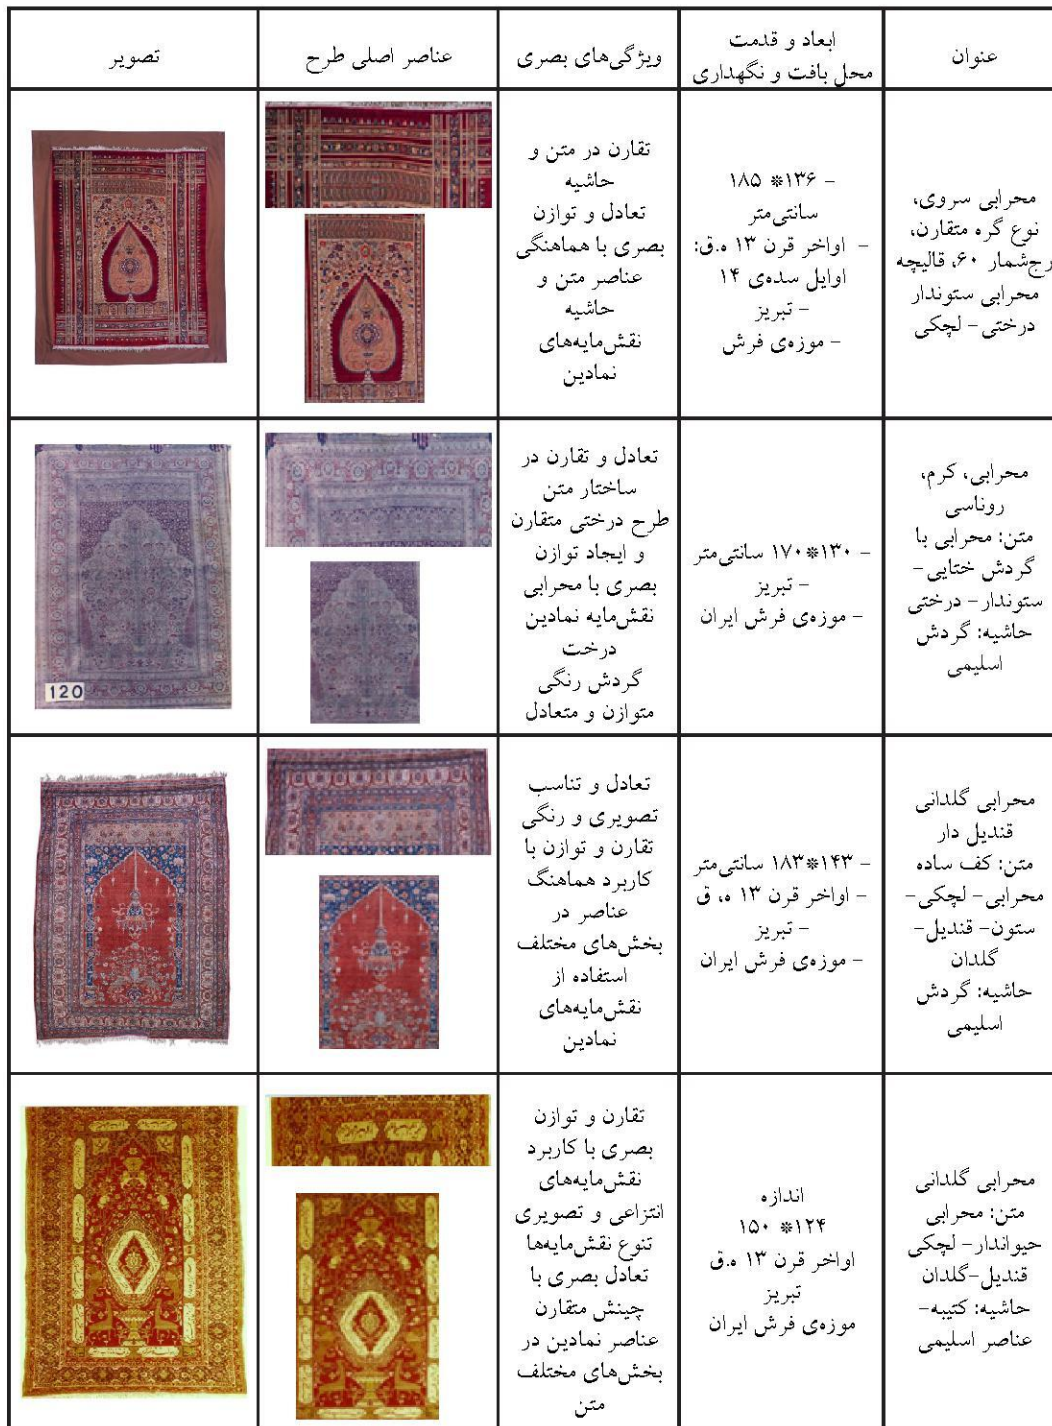 عنوان
ابعاد و قدمت
محل بافت و نگهداری
ویژگی‌های بصری
عناصر اصلی طرح
تصویر
محرابی سروی،
نوع گره متقارن،
رجشمار ۶۰، قالیچه
محرابی ستوندار
درختی - لچکی
- ۱۳۶* ۱۸۵
سانتی‌متر
- اواخر قرن ۱۳ ه.ق:
اوایل سده‌ی ۱۴
- تبریز
- موزه‌ی فرش
تقارن در متن و
حاشیه
تعادل و توازن
بصری با هماهنگی
عناصر متن و
حاشیه
نقش‌مایه‌های
نمادین
محرابی، کرم،
روناسی
متن: محرابی با
گردش ختایی-
ستوندار- درختی
حاشیه: گردش
اسلیمی
- ۱۳۰*۱۷۰ سانتی‌متر
- تبریز
- موزه‌ی فرش ایران
تعادل و تقارن در
ساختار متن
طرح درختی متقارن
و ایجاد توازن
بصری با محرابی
نقش‌مایه نمادین
درخت
گردش رنگی
متوازن و متعادل
120
محرابی گلدانی
قندیل دار
متن: کف ساده
محرابی- لچکی-
ستون- قندیل-
گلدان
حاشیه: گردش
اسلیمی
- ۱۴۳*۱۸۳ سانتی‌متر
- اواخر قرن ۱۳ ه، ق
- تبریز
- موزه‌ی فرش ایران
تعادل و تناسب
تصویری و رنگی
تقارن و توازن با
کاربرد هماهنگ
عناصر در
بخش‌های مختلف
استفاده از
نقش‌مایه‌های
نمادین
محرابی گلدانی
متن: محرابی
حیواندار- لچکی
قندیل-گلدان
حاشیه: کتیبه-
عناصر اسلیمی
اندازه
۱۲۴* ۱۵۰
اواخر قرن ۱۳ ه.ق
تبریز
موزه‌ی فرش ایران
تقارن و توازن
بصری با کاربرد
نقش‌مایه‌های
انتزاعی و تصویری
تنوع نقش‌مایه‌ها
تعادل بصری با
چینش متقارن
عناصر نمادین در
بخش‌های مختلف
متن